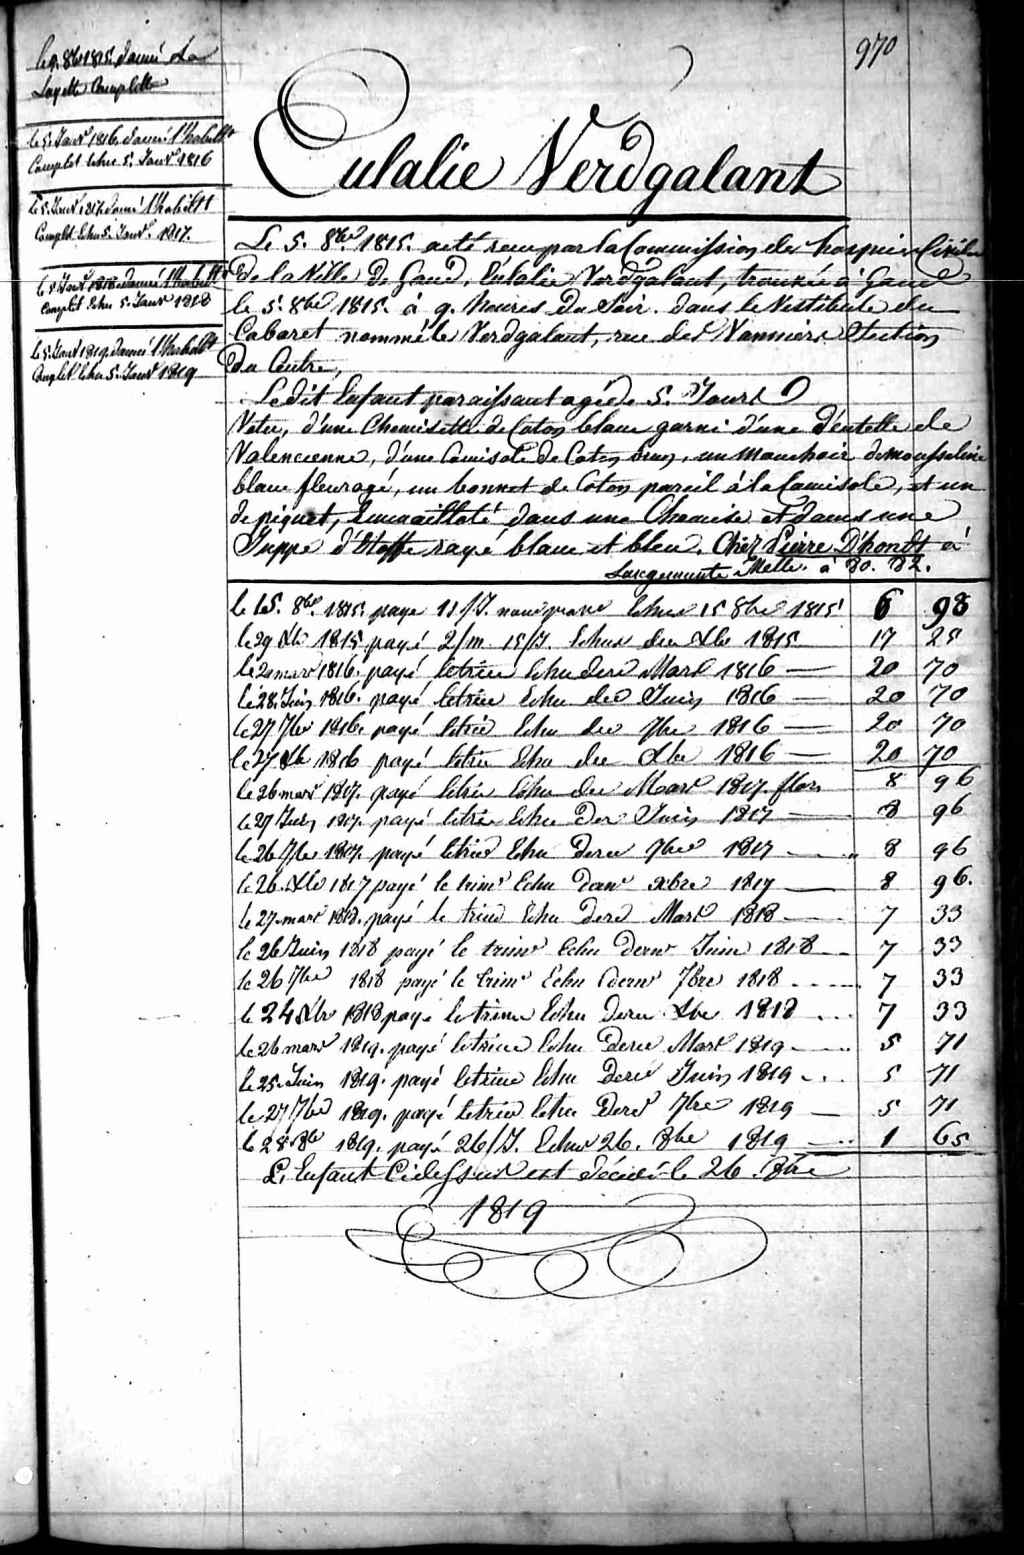 970
le 9. 8bre 1815. donné La
Layette Complette
le 5. Janvr 1816. donné l'habillt
Complet Echu 5. Janvr 1816
Le 5. Janvr 1817. donné l'habillt
Complet Echu 5. Janvr. 1817.
le 5. Janvr 1818. donné l'habillt
Complet Echu 5. Janvr 1818
le 5. Janvr 1819. donné l'habillt
Complet Echu 5. Janvr 1819
Eulalie Verdgalant
Le 5. 8bre 1815. acté recu par la Commission des hospices Civiles
De la Ville De Gand, Eulalie Verdgalant, trouvée à Gand
le 5. 8bre 1815. à 9. heures Du Soir. dans le Vestibule du
Cabaret nommé le Verdgalant, rue des Vanniers Section
Du Centre,
Ledit Enfant paraissant agé de 5. Jours
Vetu, d'une Chemisette de Coton blanc garni d'une Dentelle de
Valencienne, d'une Camisole de Coton brun, un mouchoir de mousseline
blanc fleuragé, un bonnet de Coton pareil à la Camisole, et un
de piquet, Emmailloté dans une Chemise et dans une
Juppe d'Etoffe rayé blanc et bleu. Chez Pierre D'hondt à
Melle. à 30. 32.
le 15. 8bre 1815. paye 11/J. Echus 15 8bre 1815 6 98
le 29 Xbre 1815 payé 2/m. 15/J. Echus dern Xbre 1815 17 25
le 20 mars 1816. payé letrim Echu dern Mars 1816 — 20 70
le 28. Juin 1816. payé letrim Echu der Juin 1816 — 20 70
le 27 7bre 1816. payé letrim Echu der 7bre 1816 — 20 70
le 27 Xbre 1816 payé letrim Echu der Xbre 1816 — 20 70
le 26 mars 1817. payé letrim Echu der Mars 1817. flor 8 96
le 27 Juin 1817. payé letrim Echu Der Juin 1817 — 8 96
le 26 7bre 1817. payé letrim Echu Dern 7bre 1817 — 8 96
le 26. Xbre 1817 payé le trimr Echu dernr xbre 1817 — 8 96.
le 27. mars 1818. payé le trim Echu dern Mars 1818 — 7 33
le 26 Juin 1818 payé le trimr Echu dernr Juin 1818 — 7 33
le 26 7bre 1818 payé le trimr Echu dernr 7bre 1818 .... 7 33
le 24 Xbr 1818 payé le trim Echu Dern Xbre 1818 ... 7 33
le 26 mars 1819. payé letrim Echu Dern Mars 1819 — 5 71
le 25. Juin 1819. payé letrim Echu Dern Juin 1819 — 5 71
le 27 7bre 1819. payé letrim Echu Dernr 7bre 1819 — 5 71
le 28. 8bre 1819. payé 26/J. Echus 26. 8bre 1819 — 1 65
L'Enfant Cidessus est décédé le 26. 8bre
1819